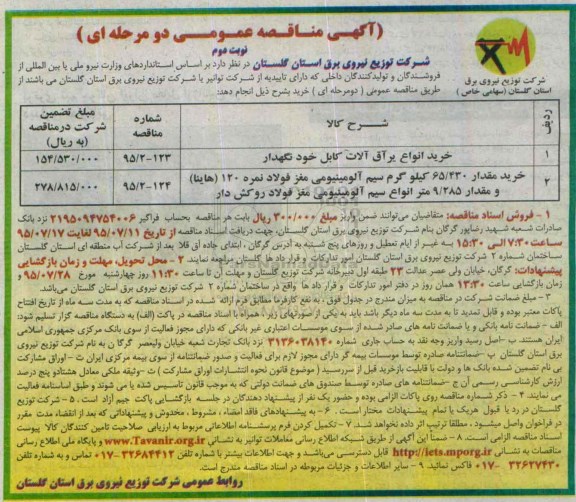 (آگهی مناقصه عمومی دو مرحله ای)
نوبت دوم
شرکت توزیع نیروی برق
استان گلستان (سهامی خاص)
شرکت توزیع نیروی برق استان گلستان در نظر دارد بر اساس استانداردهای وزارت نیرو ملی یا بین المللی از
فروشندگان و تولیدکنندگان داخلی که دارای تاییدیه از شرکت توانیر یا شرکت توزیع نیروی برق استان گلستان می باشند از
طریق مناقصه عمومی (دومرحله ای) خرید بشرح ذیل انجام دهد:
ردیف شرح کالا شماره مناقصه مبلغ تضمین شرکت درمناقصه (به ریال)
۱ خرید انواع یرآق آلات کابل خود نگهدار ۹۵/۲-۱۲۳ ۱۵۳/۵۳۰/۰۰۰
۲ خرید مقدار ۶۵/۴۳۰ کیلو گرم سیم آلومینیومی مغز فولاد نمره ۱۲۰ (هاینا)
و مقدار ۹/۲۸۵ متر انواع سیم آلومینیومی مغز فولاد روکش دار ۹۵/۲-۱۲۴ ۲۷۸/۸۱۵/۰۰۰
۱ - فروش اسناد مناقصه: متقاضیان می‌توانند ضمن واریز مبلغ ۳۰۰/۰۰۰ ریال بابت هر مناقصه بحساب فراگیر ۲۱۹۵۰۹۴۷۵۴۰۰۶ نزد بانک
صادرات شعبه شهید رضاپور گرگان بنام شرکت توزیع نیروی برق استان گلستان، جهت دریافت اسناد مناقصه از تاریخ ۹۵/۰۷/۱۱ لغایت ۹۵/۰۷/۱۷
ساعت ۷:۳۰ الی ۱۵:۳۰ به غیر از ایام تعطیل و روزهای پنج شنبه به آدرس گرگان، ابتدای جاده آق قلا بعد از شرکت آب منطقه ای استان گلستان
ساختمان شماره ۲ شرکت توزیع نیروی برق استان گلستان امور تدارکات و قرار داد ها گلستان مراجعه نمایند. ۲ - محل تحویل، مهلت و زمان بازگشایی
پیشنهادات: گرگان، خیابان ولی عصر عدالت ۲۳ طبقه اول دبیرخانه شرکت توزیع گلستان و مهلت آن تا ساعت ۱۱:۳۰ روز چهارشنبه مورخ ۹۵/۰۷/۲۸ و
زمان بازگشایی ساعت ۱۳:۳۰ همان روز در دفتر امور تدارکات و قرار داد ها واقع در ساختمان شماره ۲ شرکت توزیع نیروی برق استان گلستان می‌باشد.
۳ - مبلغ ضمانت شرکت در مناقصه به میزان مندرج در جدول فوق، به نفع کارفرما مطابق فرم ارائه شده در اسناد مناقصه که به مدت سه ماه از تاریخ افتتاح
پاکات معتبر بوده و قابل تمدید تا به مدت سه ماه دیگر باشد باید به یکی از صورتهای زیر، همراه با اسناد مناقصه در پاکت (الف) به دستگاه مناقصه گزار تسلیم شود:
الف - ضمانت نامه بانکی و یا ضمانت نامه های صادر شده از سوی موسسات اعتباری غیر بانکی که دارای مجوز فعالیت از سوی بانک مرکزی جمهوری اسلامی
ایران هستند. ب -اصل رسید واریز وجه نقد به حساب جاری شماره ۳۱۳۶۰۳۸۱۴۰ نزد بانک تجارت شعبه خیابان ولیعصر گرگان به نام شرکت توزیع نیروی
برق استان گلستان پ -ضمانتنامه صادره توسط موسسات بیمه گر دارای مجوز لازم برای فعالیت و صدور ضمانتنامه از سوی بیمه مرکزی ایران ت - اوراق مشارکت
بی نام تضمین شده بانک ها و دولت با قابلیت بازخرید قبل از سررسید (موضوع قانون نحوه انتشارات اوراق مشارکت) ث -وثیقه ملکی معادل هشتادو پنج درصد
ارزش کارشناسی رسمی آن ج -ضمانتنامه های صادره توسط صندوق های ضمانت دولتی که به موجب قانون تاسیس شده یا می شوند و طبق اساسنامه فعالیت
می نمایند. ۴ - ذکر شماره مناقصه روی پاکات الزامی بوده و حضور یک نفر از پیشنهاد دهندگان در جلسه بازگشایی پاکات جیم آزاد است. ۵ - شرکت توزیع
گلستان در رد یا قبول هریک یا تمام پیشنهادات مختار است. ۶ - به پیشنهادهای فاقد امضاء، مشروط، مخدوش و پیشنهاداتی که بعد از انقضاء مدت مقرر
در فراخوان واصل میشود. مطلقا ترتیب اثر داده نخواهد شد. ۷ - تکمیل کردن فرم پرسشنامه اطلاعاتی مربوط به ارزیابی صلاحیت تامین کنندگان کالا پیوست
اسناد مناقصه الزامی است. ۸ - ضمناً این آگهی از طریق شبکه اطلاع رسانی معاملات توانیر به نشانی www.Tavanir.org.ir و پایگاه ملی اطلاع رسانی
مناقصات به نشانی http://iets.mporg.ir قابل دسترسی می‌باشد و جهت اطلاعات بیشتر با شماره تلفن ۳۲۶۸۴۴۱۳-۰۱۷ تماس و به شماره تلفن
۳۲۶۲۷۴۳۰-۰۱۷ فاکس نمایند. ۹ - سایر اطلاعات و جزئیات مربوطه در اسناد مناقصه مندرج است.
روابط عمومی شرکت توزیع نیروی برق استان گلستان